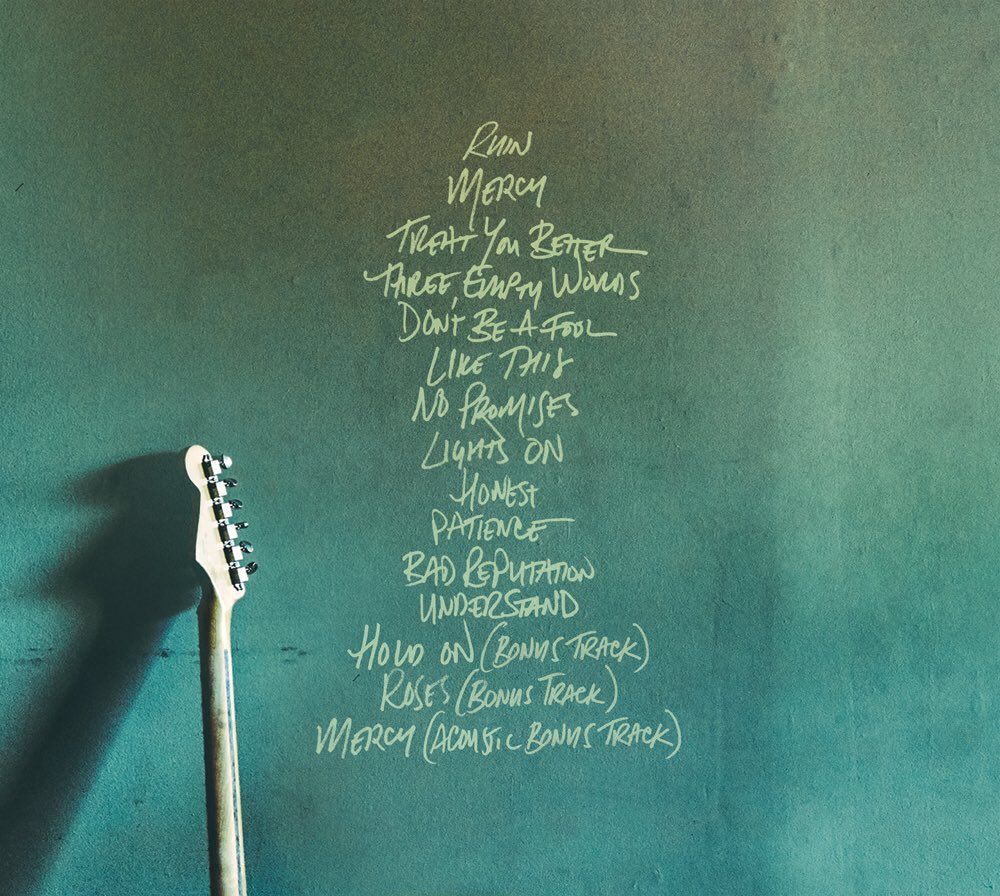 RUIN
MERCY
TREAT YOU BETTER
THREE EMPTY WORDS
DON'T BE A FOOL
LIKE THIS
NO PROMISES
LIGHTS ON
HONEST
PATIENCE
BAD REPUTATION
UNDERSTAND
HOLD ON (BONUS TRACK)
ROSES (BONUS TRACK)
MERCY (ACOUSTIC BONUS TRACK)